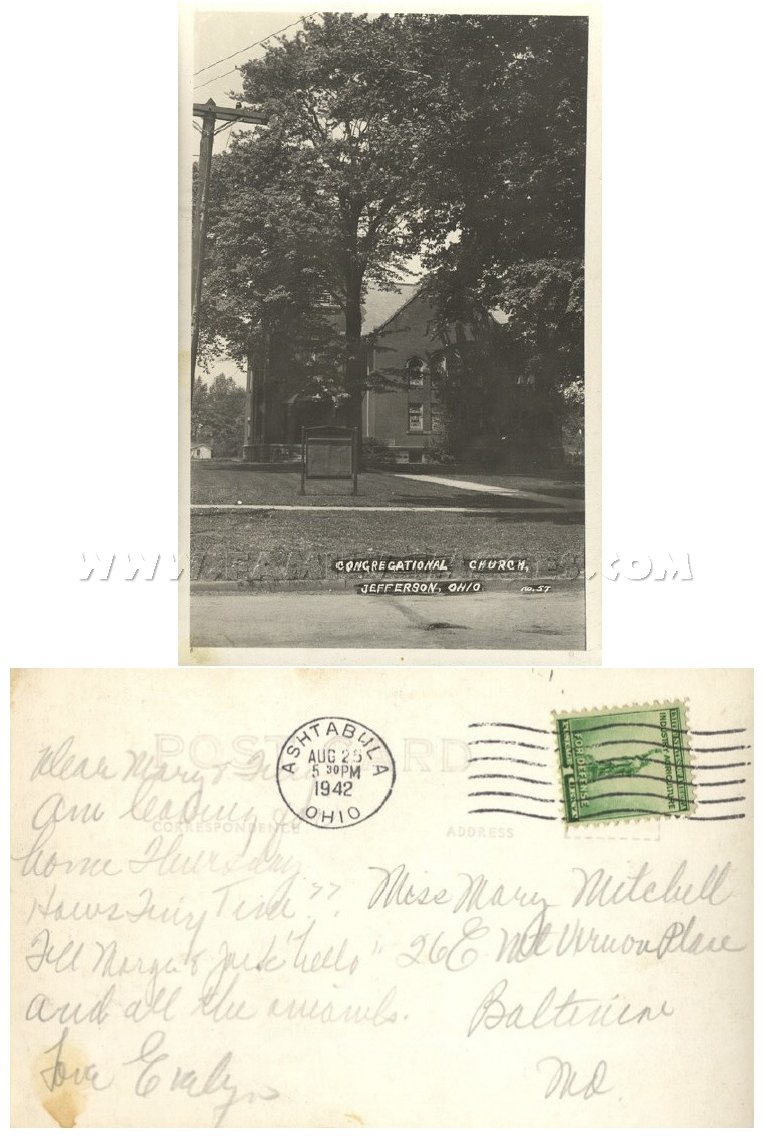 WWW.FAMILYOLDTIMES.COM
CONGREGATIONAL CHURCH,
JEFFERSON, OHIO. NO. 57
POST CARD
ASHTABULA
AUG 25
5 30 PM
1942
OHIO
INDUSTRY AGRICULTURE
FOR DEFENSE
CORRESPONDENCE
ADDRESS
Dear Mary &
Am leaving
home Thursday
Hows Tiny Tim??
Tell Marge & Jack "hello"
and all the animals.
Love Evelyn
Miss Mary Mitchell
26 E. Mt Vernon Place
Baltimore
Md.